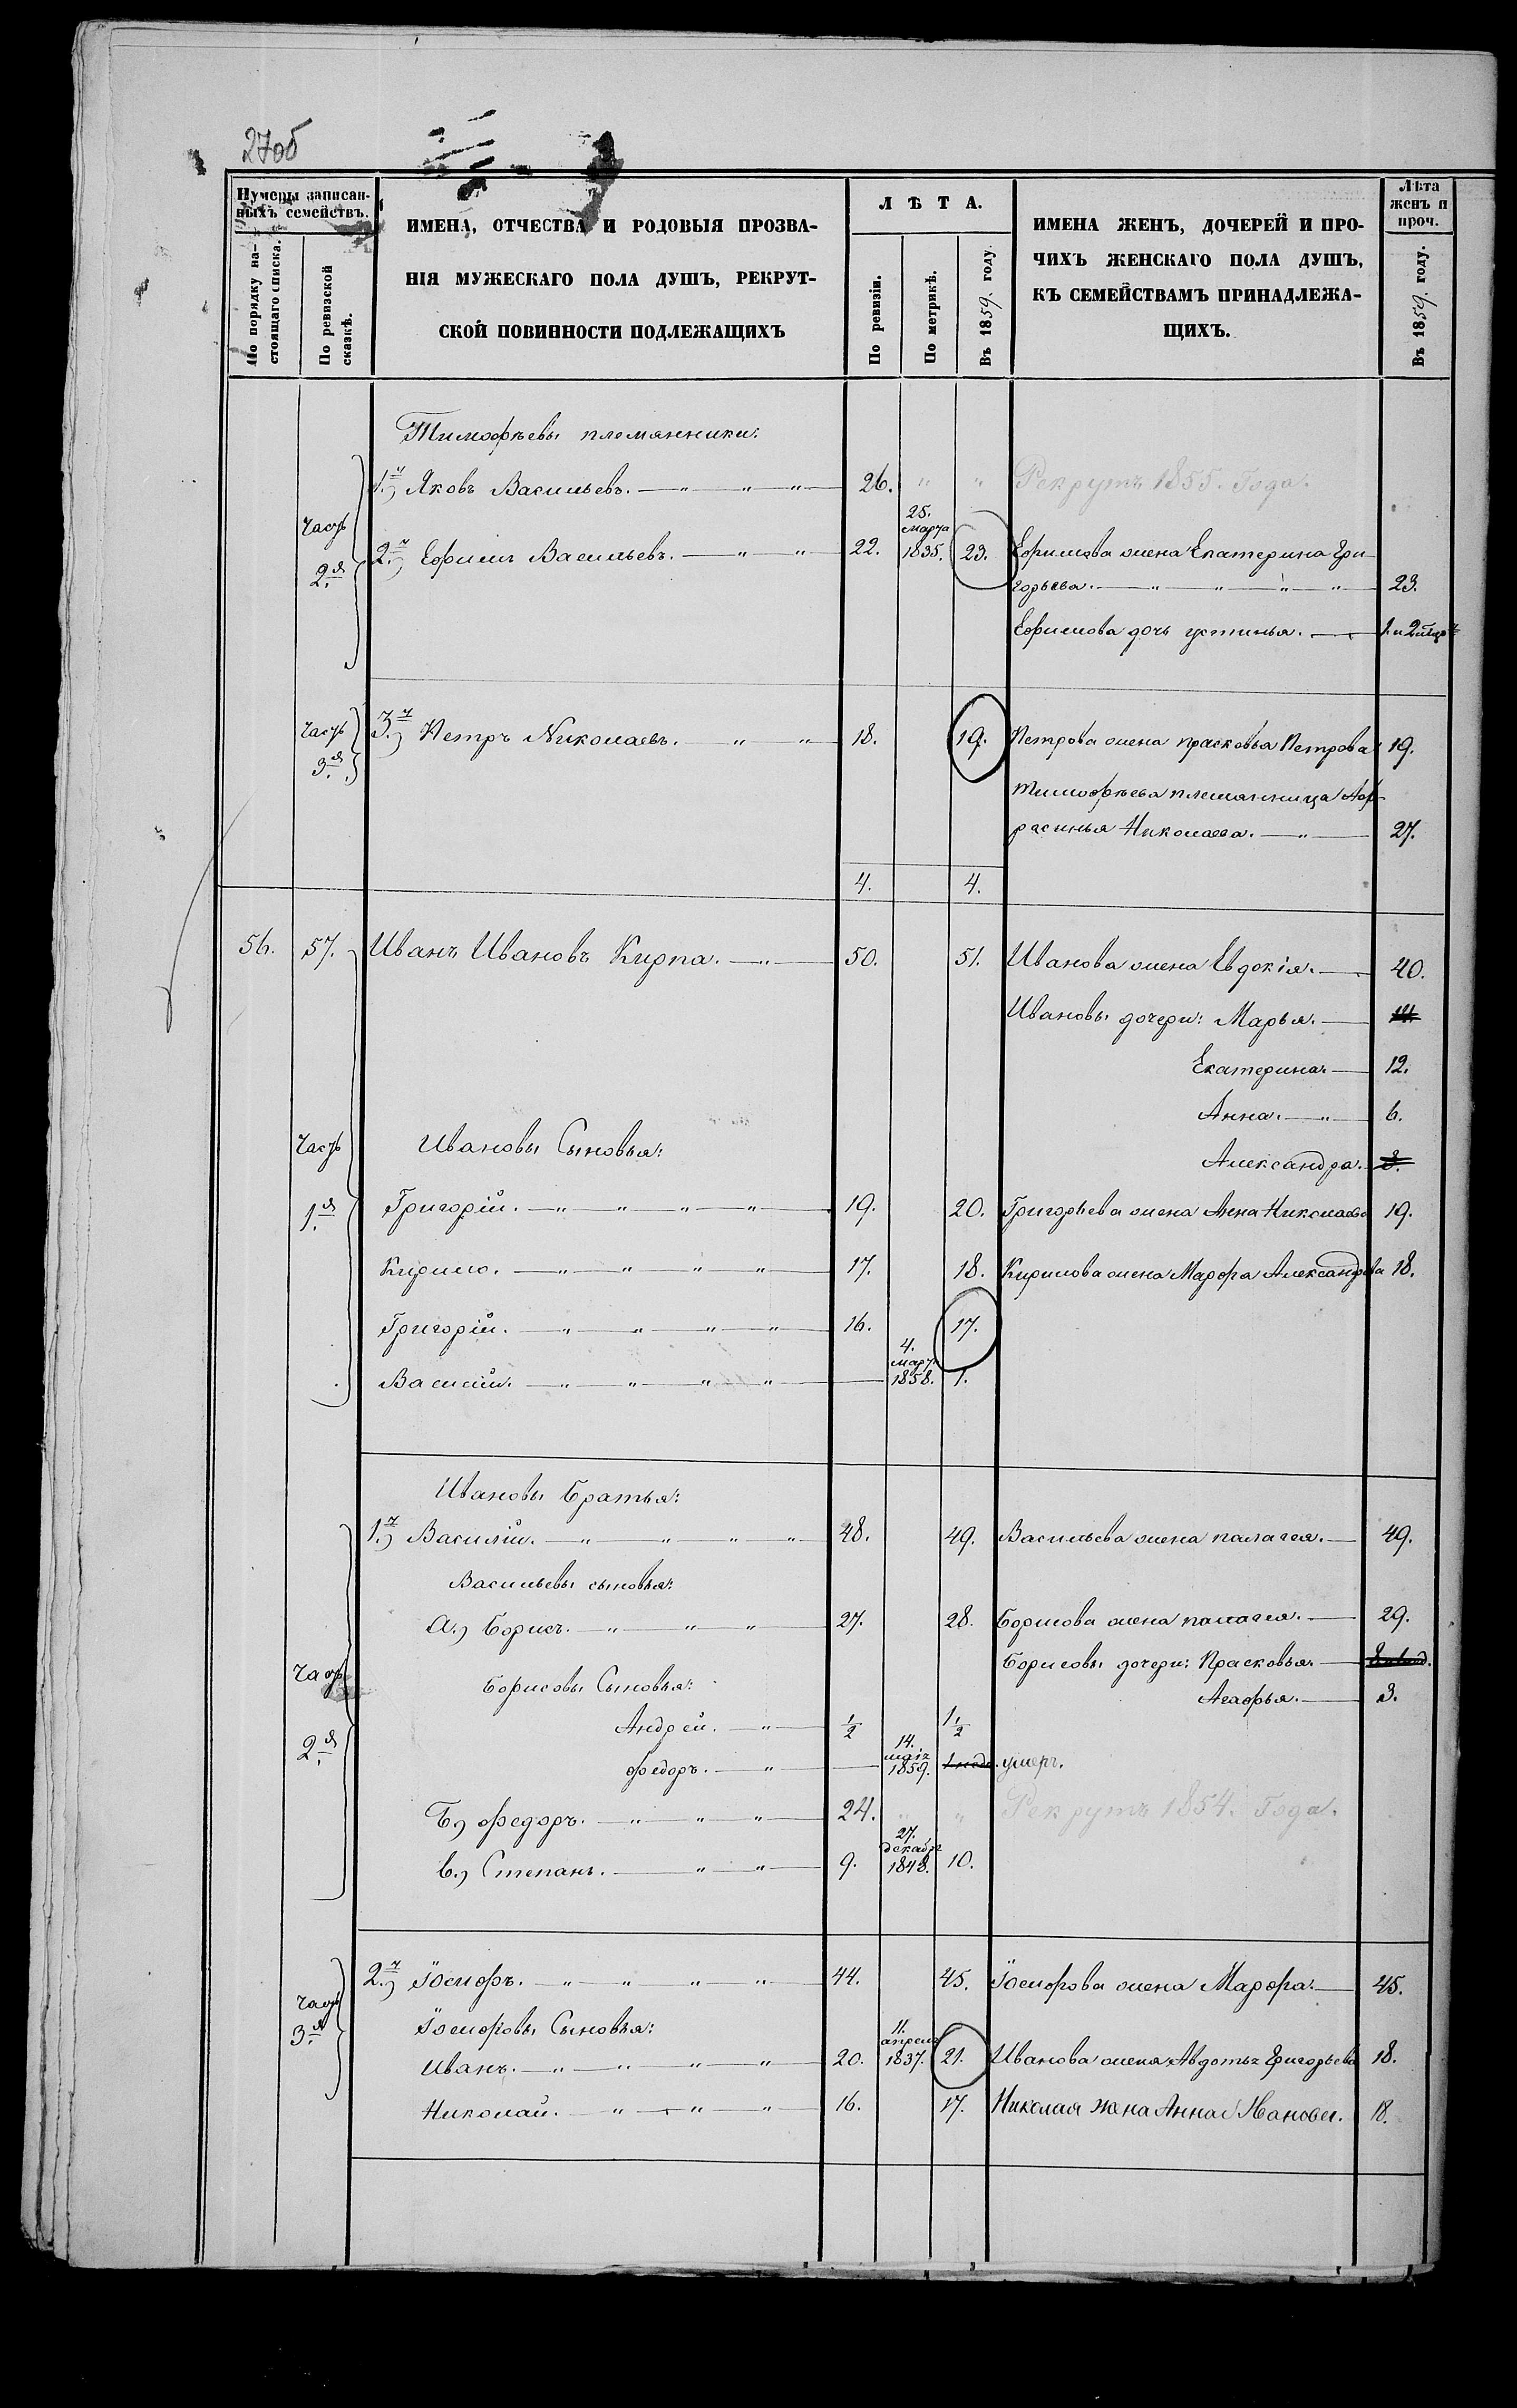 27об
Нумеры записан-
ныхъ семействъ.
По порядку на-
стоящаго списка.
По ревизской
сказкѣ.
ИМЕНА, ОТЧЕСТВА И РОДОВЫЯ ПРОЗВА-
НІЯ МУЖЕСКАГО ПОЛА ДУШЪ, РЕКРУТ-
СКОЙ ПОВИННОСТИ ПОДЛЕЖАЩИХЪ
ЛѢТА.
По ревизіи.
По метрикѣ.
Въ 1859. году.
ИМЕНА ЖЕНЪ, ДОЧЕРЕЙ И ПРО-
ЧИХЪ ЖЕНСКАГО ПОЛА ДУШЪ,
КЪ СЕМЕЙСТВАМЪ ПРИНАДЛЕЖА-
ЩИХЪ.
Лѣта
женъ и
проч.
Въ 1859. году.
Тимофѣевы племянники:
1.й) Яковъ Васильевъ. — " — " — " — 26. " " Рекрутъ 1855. Года.
Часть
2.я
2.й) Ефимъ Васильевъ. — " — " — 22. 25. марта 1835. 23. Ефимова жена Екатерина Гри-
горьева. — " — " — " — " — 23.
Ефимова дочь устинья. —
Часть
3.я
3.й) Петръ Николаевъ. — " — " — 18. 19. Петрова жена прасковья Петрова 19.
тимофѣева племянница Аф-
расинья Николаева. — " — 27.
4. 4.
56. 57. Иванъ Ивановъ Кирпа. — " — 50. 51. Иванова жена Евдокія. — 40.
Ивановы дочери: Марья. — 14.
Екатерина. — 12.
Анна. — " — 6.
Часть
1.я
Ивановы Сыновья:
Александра. 3.
Григорій. — " — " — " — " — 19. 20. Григорьева жена Анна Николаева 19.
Кирило. — " — " — " — " — 17. 18. Кирилова жена Марфа Александрова 18.
Григорій. — " — " — " — " — 16. 17.
Василій. — " — " — " — " — 4. март 1858. 1.
Ивановы Братья:
1.й) Василій. — " — " — " — " — 48. 49. Васильева жена палагея. — 49.
Васильевы сыновья:
А.) Борисъ. — " — " — " — 27. 28. Борисова жена палагея. — 29.
Часть
2.я
Борисовы дочери: Прасковья. —
Борисовы Сыновья:
Агафья. — 3.
Андрей. — " — 1/2 1 1/2
федоръ. — " — 14. маія 1859. умеръ.
Б) федоръ. — " — " — " — 24. " " Рекрутъ 1854. Года.
в.) Степанъ. — " — " — 9. 27. декабр 1848. 10.
Часть
3.я
2.й) Іосифъ. — " — " — " — " — 44. 45. Іосифова жена Марфа. — 45.
Іосифовы Сыновья:
Иванъ. — " — " — " — " — 20. 11. апреля 1837. 21. Иванова жена Авдотья Григорьева 18.
Николай. — " — " — " — 16. 17. Николая жена Анна Иванова. 18.